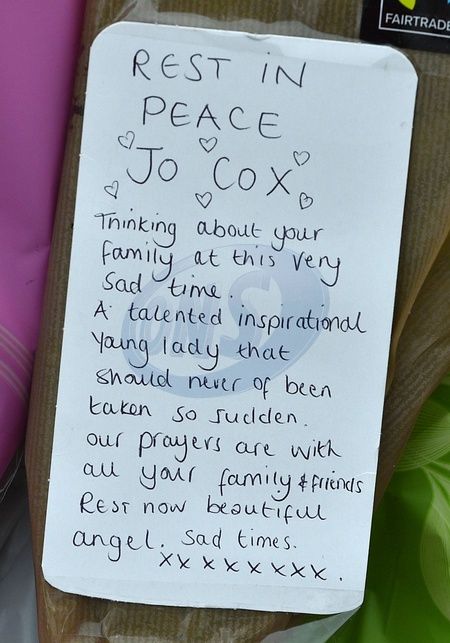 FAIRTRADE
REST IN
PEACE
JO COX
Thinking about your
family at this very
sad time..
A talented inspirational
young lady that
should never of been
taken so sudden.
our prayers are with
all your family & friends
REST now beautiful
angel. Sad times.
xxxxxxxx.